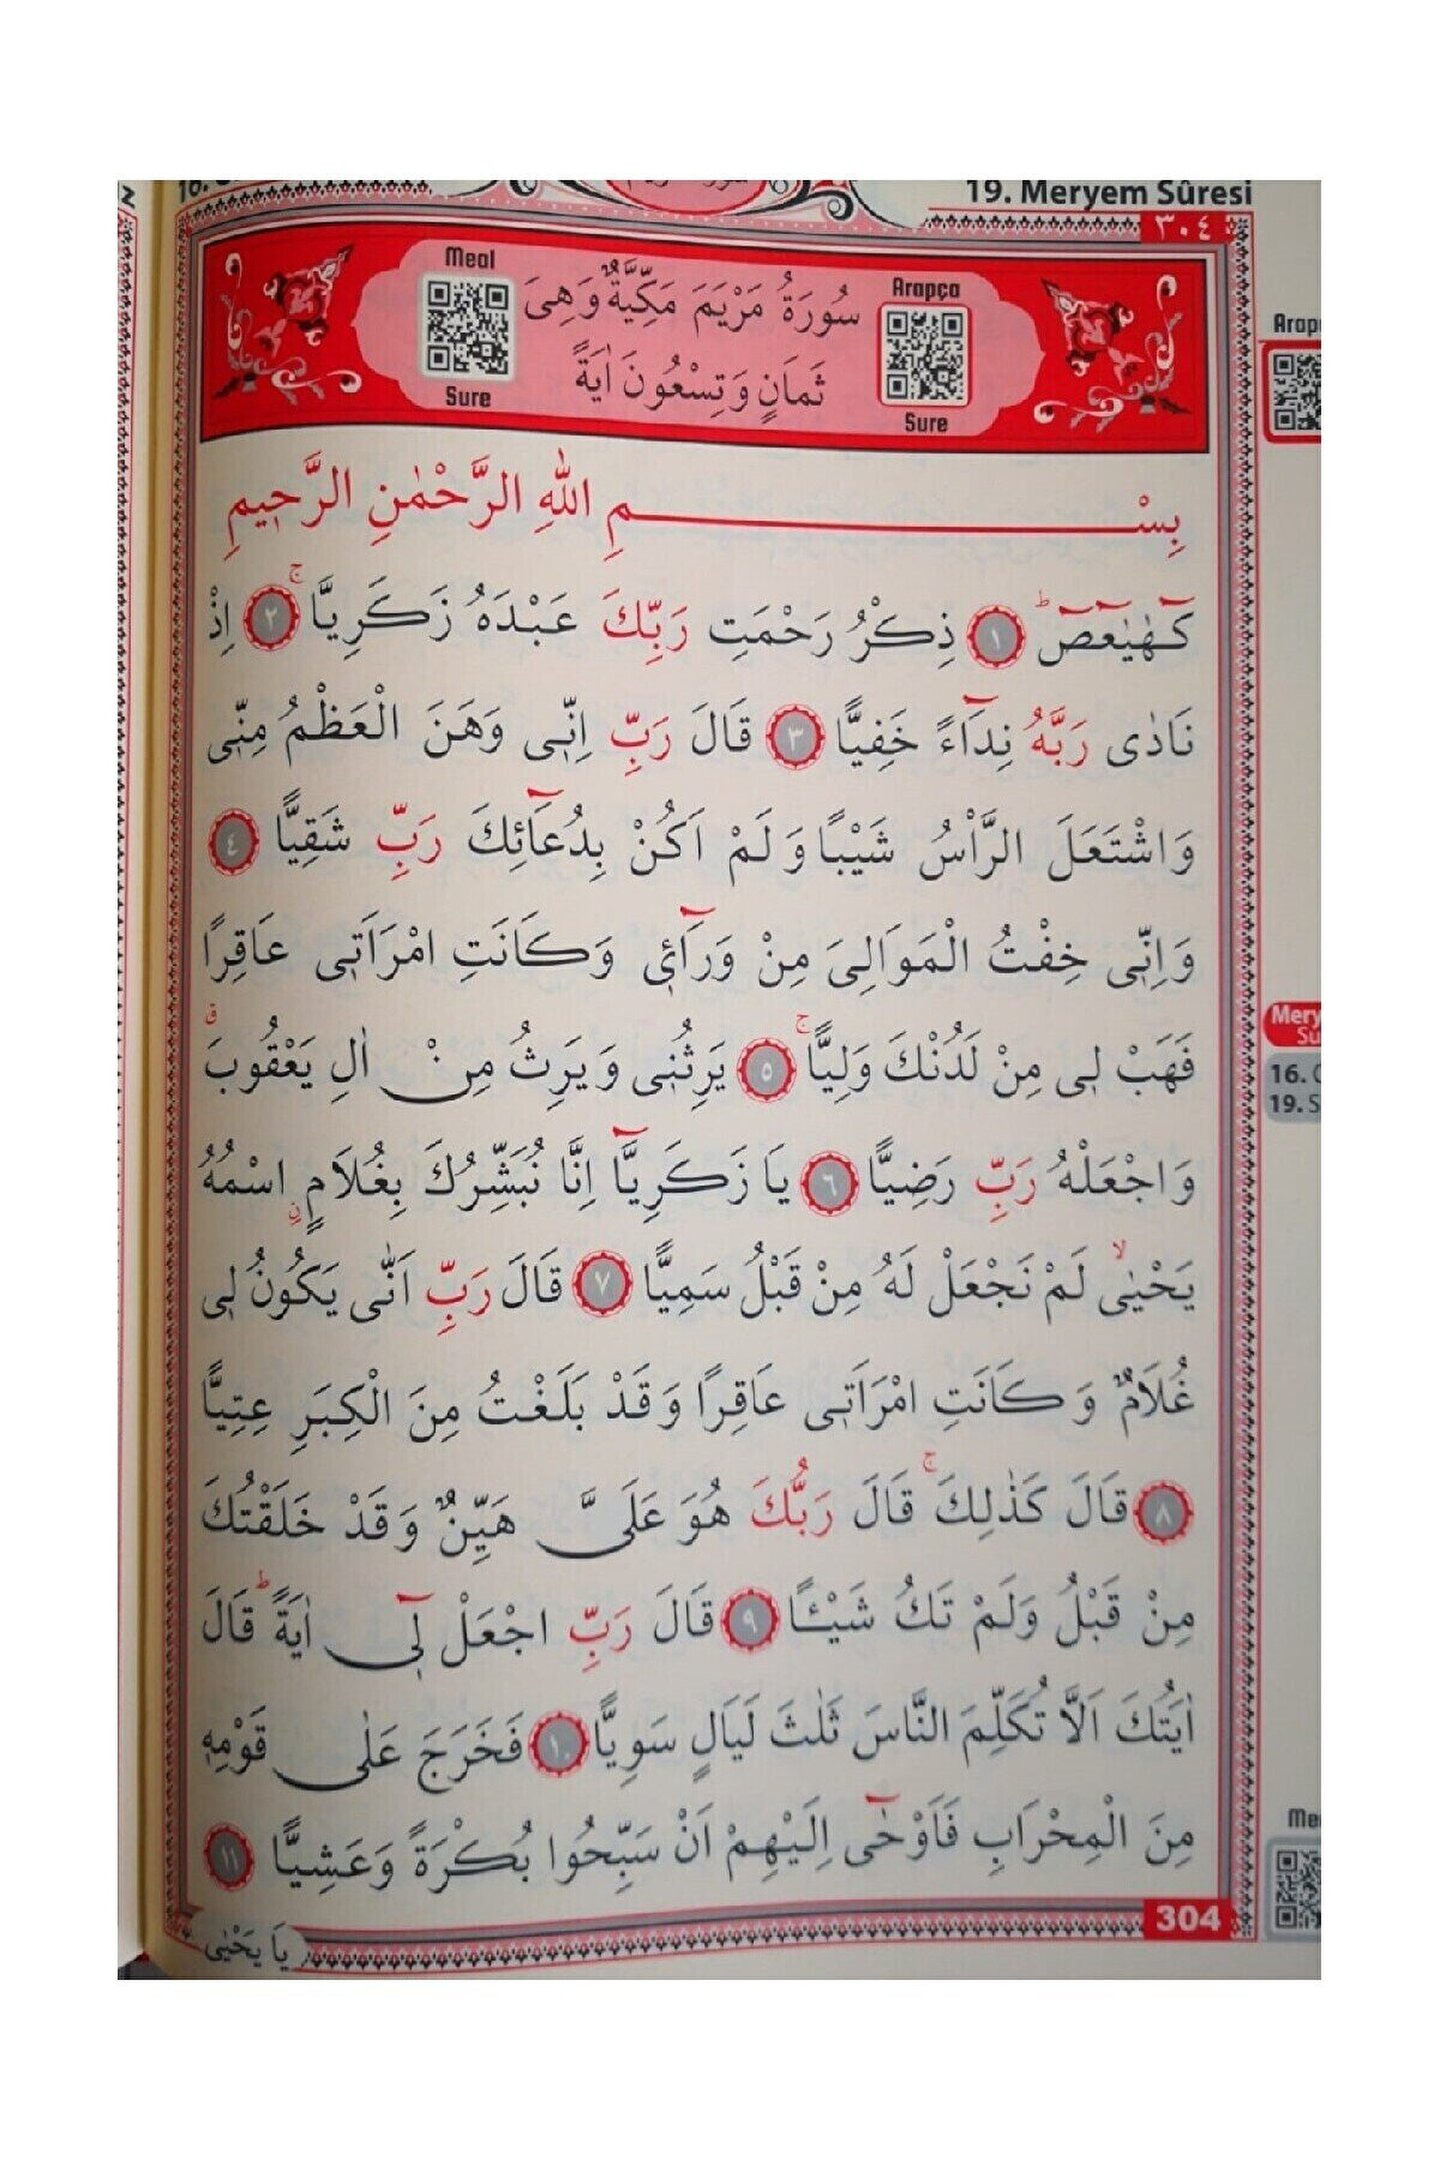 19. Meryem Sûresi
٣٠٤
Meal
Sure
Arapça
Sure
سُورَةُ مَرْيَمَ مَكِّيَّةٌ وَهِىَ
ثَمَانٍ وَتِسْعُونَ اٰيَةً
بِسْمِ اللّٰهِ الرَّحْمٰنِ الرَّحٖيمِ
كٓهٰيٰعٓصٓ ۜ ١ ذِكْرُ رَحْمَتِ رَبِّكَ عَبْدَهُ زَكَرِيَّا ۚ ٢ اِذْ
نَادٰى رَبَّهُ نِدَٓاءً خَفِيًّا ٣ قَالَ رَبِّ اِنّٖى وَهَنَ الْعَظْمُ مِنّٖى
وَاشْتَعَلَ الرَّأْسُ شَيْبًا وَلَمْ اَكُنْ بِدُعَٓائِكَ رَبِّ شَقِيًّا ٤
وَاِنّٖى خِفْتُ الْمَوَالِىَ مِنْ وَرَٓائٖى وَكَانَتِ امْرَاَتٖى عَاقِرًا
فَهَبْ لٖى مِنْ لَدُنْكَ وَلِيًّا ۚ ٥ يَرِثُنٖى وَيَرِثُ مِنْ اٰلِ يَعْقُوبَ ق
وَاجْعَلْهُ رَبِّ رَضِيًّا ٦ يَا زَكَرِيَّٓا اِنَّا نُبَشِّرُكَ بِغُلَامٍ اسْمُهُ
يَحْيٰى ۙ لَمْ نَجْعَلْ لَهُ مِنْ قَبْلُ سَمِيًّا ٧ قَالَ رَبِّ اَنّٰى يَكُونُ لٖى
غُلَامٌ وَكَانَتِ امْرَاَتٖى عَاقِرًا وَقَدْ بَلَغْتُ مِنَ الْكِبَرِ عِتِيًّا
٨ قَالَ كَذٰلِكَ ۚ قَالَ رَبُّكَ هُوَ عَلَىَّ هَيِّنٌ وَقَدْ خَلَقْتُكَ
مِنْ قَبْلُ وَلَمْ تَكُ شَيْـًٔا ٩ قَالَ رَبِّ اجْعَلْ لٖٓى اٰيَةً ۜ قَالَ
اٰيَتُكَ اَلَّا تُكَلِّمَ النَّاسَ ثَلٰثَ لَيَالٍ سَوِيًّا ١٠ فَخَرَجَ عَلٰى قَوْمِهٖ
مِنَ الْمِحْرَابِ فَاَوْحٰٓى اِلَيْهِمْ اَنْ سَبِّحُوا بُكْرَةً وَعَشِيًّا ١١
304
يَا يَحْيٰى